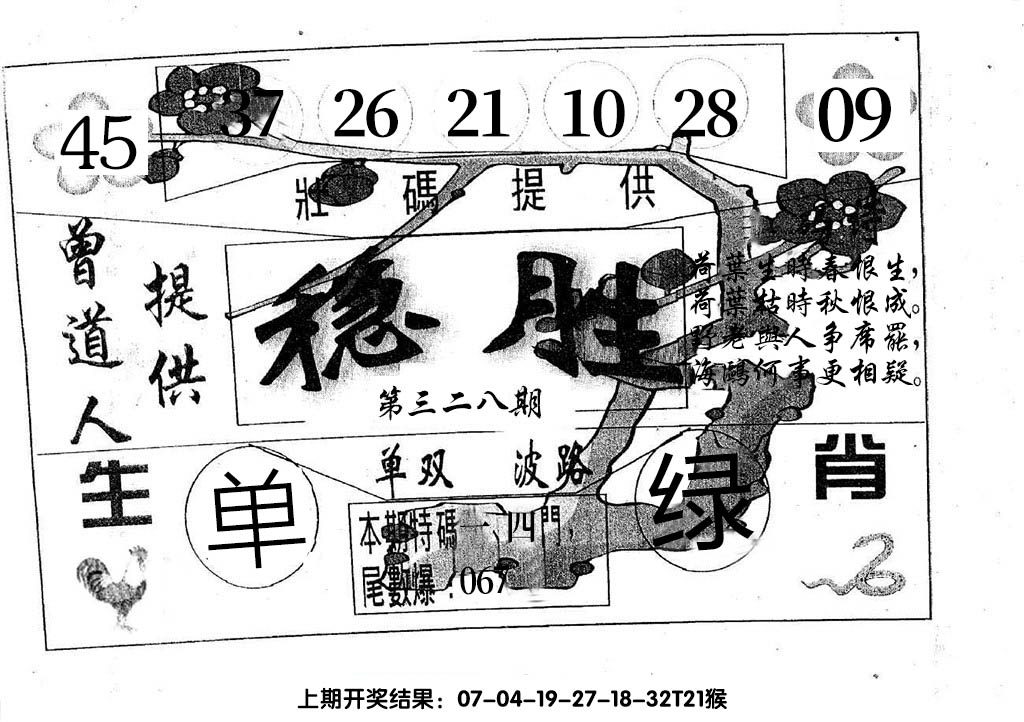 45 37 26 21 10 28 09
壯碼提供
特
曾道人
提供
稳胜
第三二八期
荷葉生時春恨生，
荷葉枯時秋恨成。
野老與人争席罷，
海鷗何事更相疑。
单双 波路
生 单 绿 肖
本期特碼一、四門，
尾數爆：067
上期开奖结果：07-04-19-27-18-32T21猴